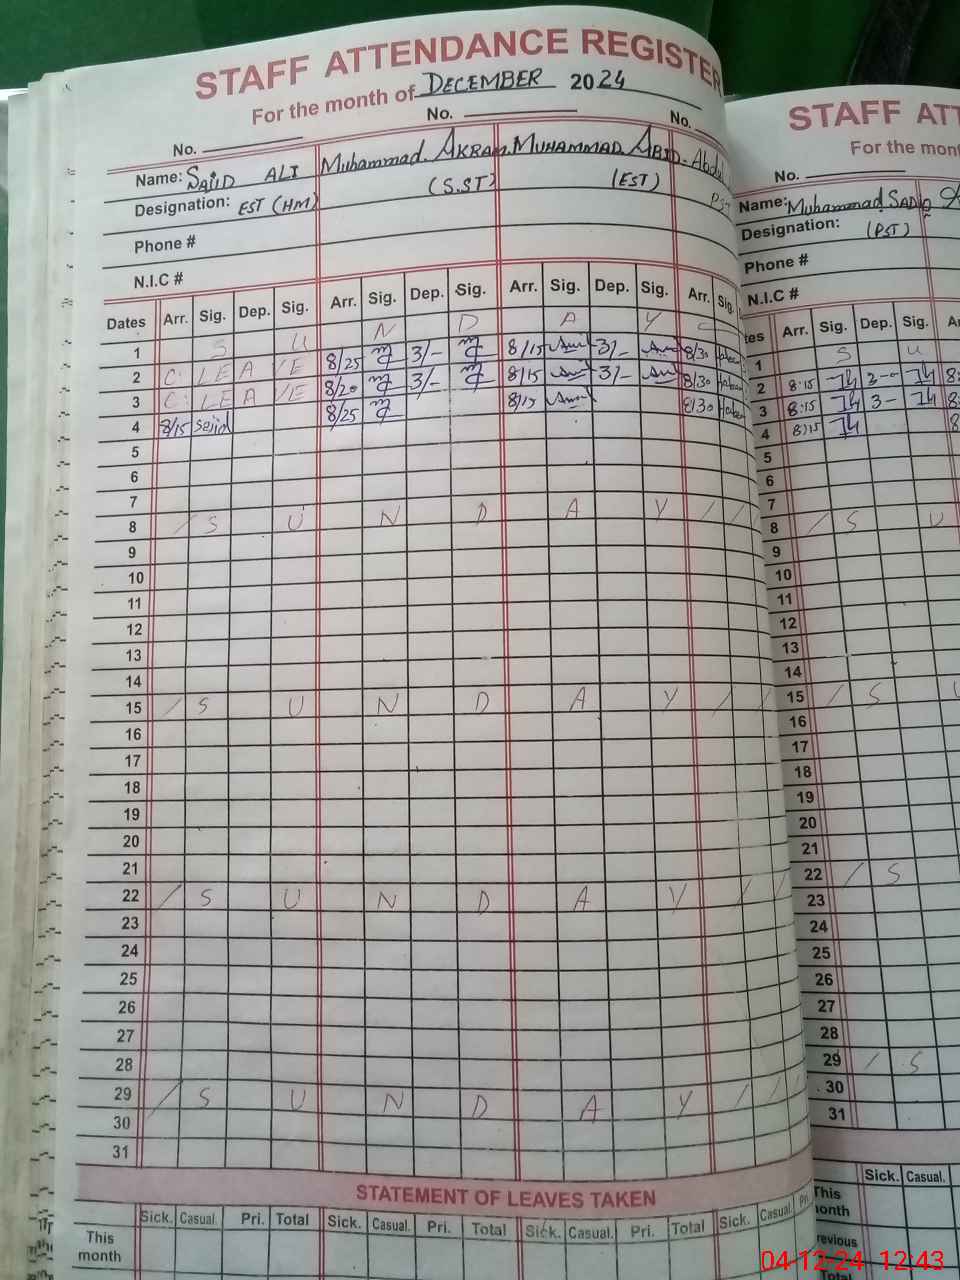 STAFF ATTENDANCE REGISTER
For the month of DECEMBER 2024
No. No. No.
Name: SAJID ALI Muhammad AKRAM. MUHAMMAD ABID. Abdul
Designation: EST (HM) (S.ST) (EST) PST
Phone #
N.I.C #
Dates Arr. Sig. Dep. Sig. Arr. Sig. Dep. Sig. Arr. Sig. Dep. Sig. Arr. Sig.
1 S U N D A Y
2 C. LEAVE 8/25 3/- 8/15 3/- 8/30
3 C. LEAVE 8/20 3/- 8/15 3/- 8/30
4 8/15 Sajid 8/25 8/15 8/30
5
6
7
8 / S U N D A Y / /
9
10
11
12
13
14
15 / S U N D A Y / /
16
17
18
19
20
21
22 / S U N D A Y / /
23
24
25
26
27
28
29 / S U N D A Y / /
30
31
STATEMENT OF LEAVES TAKEN
Sick. Casual. Pri. Total Sick. Casual. Pri. Total Sick. Casual. Pri. Total Sick. Casual. Pri.
This month
STAFF ATT
For the mont
No.
Name: Muhammad SADIQ
Designation: (PST)
Phone #
N.I.C #
tes Arr. Sig. Dep. Sig. Ar
1 S U
2 8:15 3-- 8:
3 8:15 3- 8:
4 8:15 8
5
6
7
8 / S U
9
10
11
12
13
14
15 / S U
16
17
18
19
20
21
22 / S
23
24
25
26
27
28
29 / S
30
31
Sick. Casual.
This month
revious
Total
04-12-24 12:43